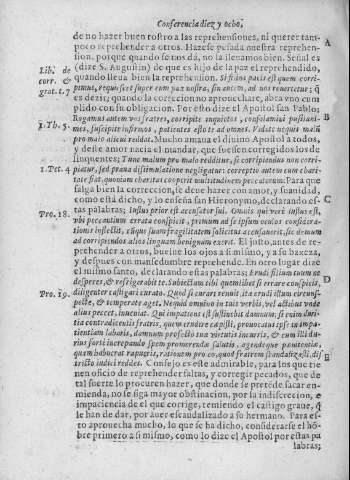 Conferencia diez y ocho,
de no hazer buen rostro a las reprehensiones, ni querer tam-
poco reprehender a otros. Hazese pesada nuestra reprehen-
sion, porque quando se nos dá, no la lleuamos bien. Señal es
(dize S. Augustin) de que es hijo de la paz el reprehendido,
quando lleua bien la reprehension. Si filius pacis est quem corri-
pimus, requiescet super eum pax nostra, sin autem, ad nos reuertetur; q̃
es dezir; quando la correccion no aprouechare, abra vno cum
plido con su obligacion. Por esto dize el Apostol san Pablo;
Rogamus autem vos fratres, corripite inquietos, consolamini pusillani-
mes, suscipite infirmos, patientes estote ad omnes. Videte nequis malũ
pro malo alicui reddat. Mucho amaua el diuino Apostol a todos,
y desse amor nacia el mandar, que fuessen corregidos los de
linquentes; Tunc malum pro malo redditur, si corripiendus non corri-
pitur, sed praua dissimulatione negligatur: correptio autem cum chari-
tate fiat, quoniam charitas cooperit multitudinem peccatorum. Para que
salga bien la correccion, se deue hazer con amor, y suauidad,
como está dicho, y lo enseña san Hieronymo, declarando es-
tas palabras; Iustus prior est accusator sui. Omnis qui verè iustus est,
vbi peccantium errata conspicit, primum ad se ipsum oculos considera-
tionis inflectit, eiusque suam fragilitatem solicitus accusauerit, sic demum
ad corripiendos alios linguam benignam exerit. El justo, antes de re-
prehender a otros, buelue los ojos a si mismo, y a su baxeza,
y despues con mansedumbre reprehende. En otro lugar dize
el mismo santo, declarando estas palabras; Erudi filium tuum ne
desperes, & refrigerabit te. Subiectum tibi quemlibet si errare conspicis,
diligenter castigare curato. Quod si curari renuit, ita erudi illum circuns-
pecte, & temperate aget. Nequid omnino in tuis verbis, vel actibus vnde
alius peccet, inueniat. Qui impatiens est sustinebit damnum: si enim duri-
tia contradicentis fratris, quem erudire cæpisti, prouocatus ipse in impa-
tientiam laberis, damnum profectò tuæ veritatis incurris, & cum illi du-
rius fortè increpando spem promerendæ salutis, agendæque pænitentiæ,
quem habuerat rapueris, rationem pro eo, quod fratrem scandalizasti, dis
tricto iudici reddes. Consejo es este admirable, para los que tie
nen oficio de reprehender faltas, y corregir pecados, que de
tal suerte lo procuren hazer, que donde se pretẽde sacar en-
mienda, no se siga mayor obstinacion, por la indiscrecion, e
impaciencia de el que corrige, temiendo el castigo graue, q̃
le han de dar, por auer escandalizado a su hermano. Para es-
to aprouecha mucho, lo que se ha dicho, considerarse el hõ-
bre primero a si mismo, como lo dize el Apostol por estas pa
labras;
Lib. de
corr. &
grat. c. 7
1. Th. 5.
1. Pet. 4
Pro. 18.
Pro. 19.
A
B
C
D
E